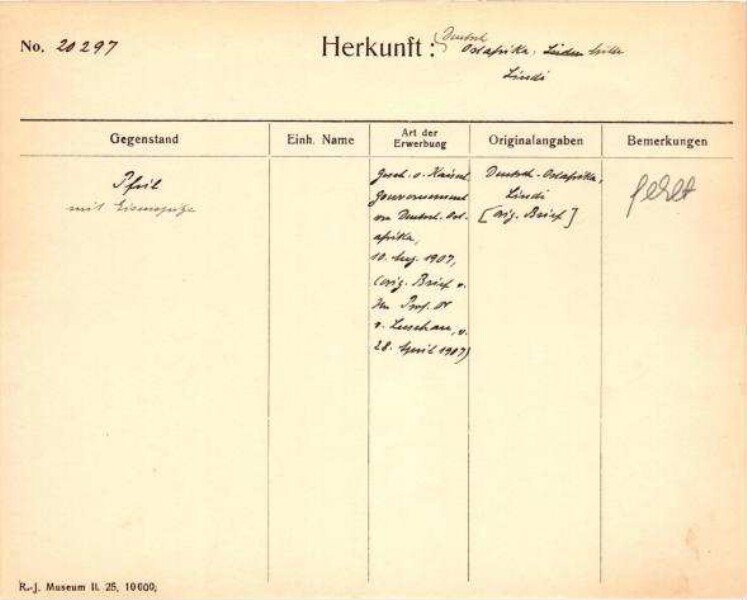 No. 20297
Herkunft: Deutsch
Ostafrika.
Lindi
Gegenstand
Einh. Name
Art der Erwerbung
Originalangaben
Bemerkungen
Pfeil
mit Eisenspitze
Gesch. v. Kaiserl.
Gouvernement
von Deutsch-Ost-
afrika,
10. Aug. 1907,
(orig. Brief v.
Hn Prof. Dr
v. Luschan, v.
28. April 1907)
Deutsch-Ostafrika,
Lindi
[orig. Brief]
fehlt
R.-J. Museum II. 25, 10000;